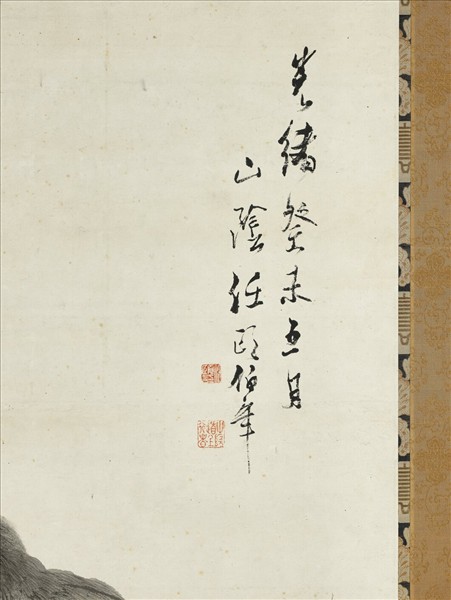 光緒癸未五月
山陰任頤伯年